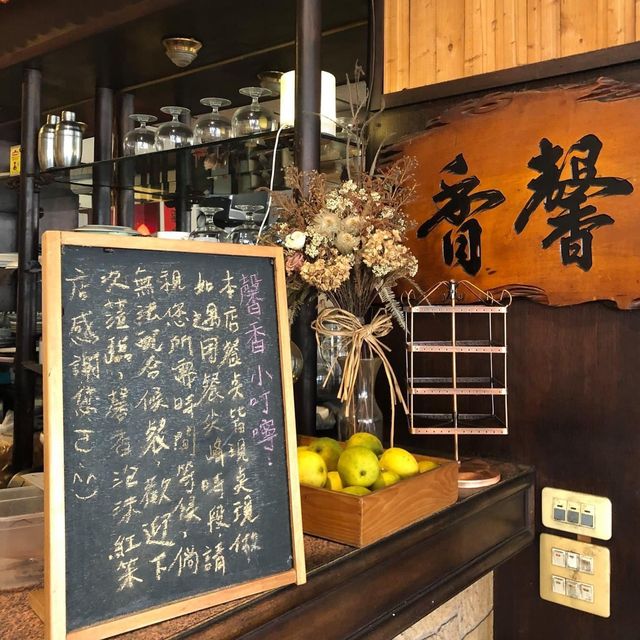 馨香
馨香小叮嚀:
本店餐奌皆現奌現做
如遇用餐尖峰時段,請
視您所需時間等候,倘
無法配合候餐,歡迎下
次蒞臨,馨香泡沫紅茶
店感謝您